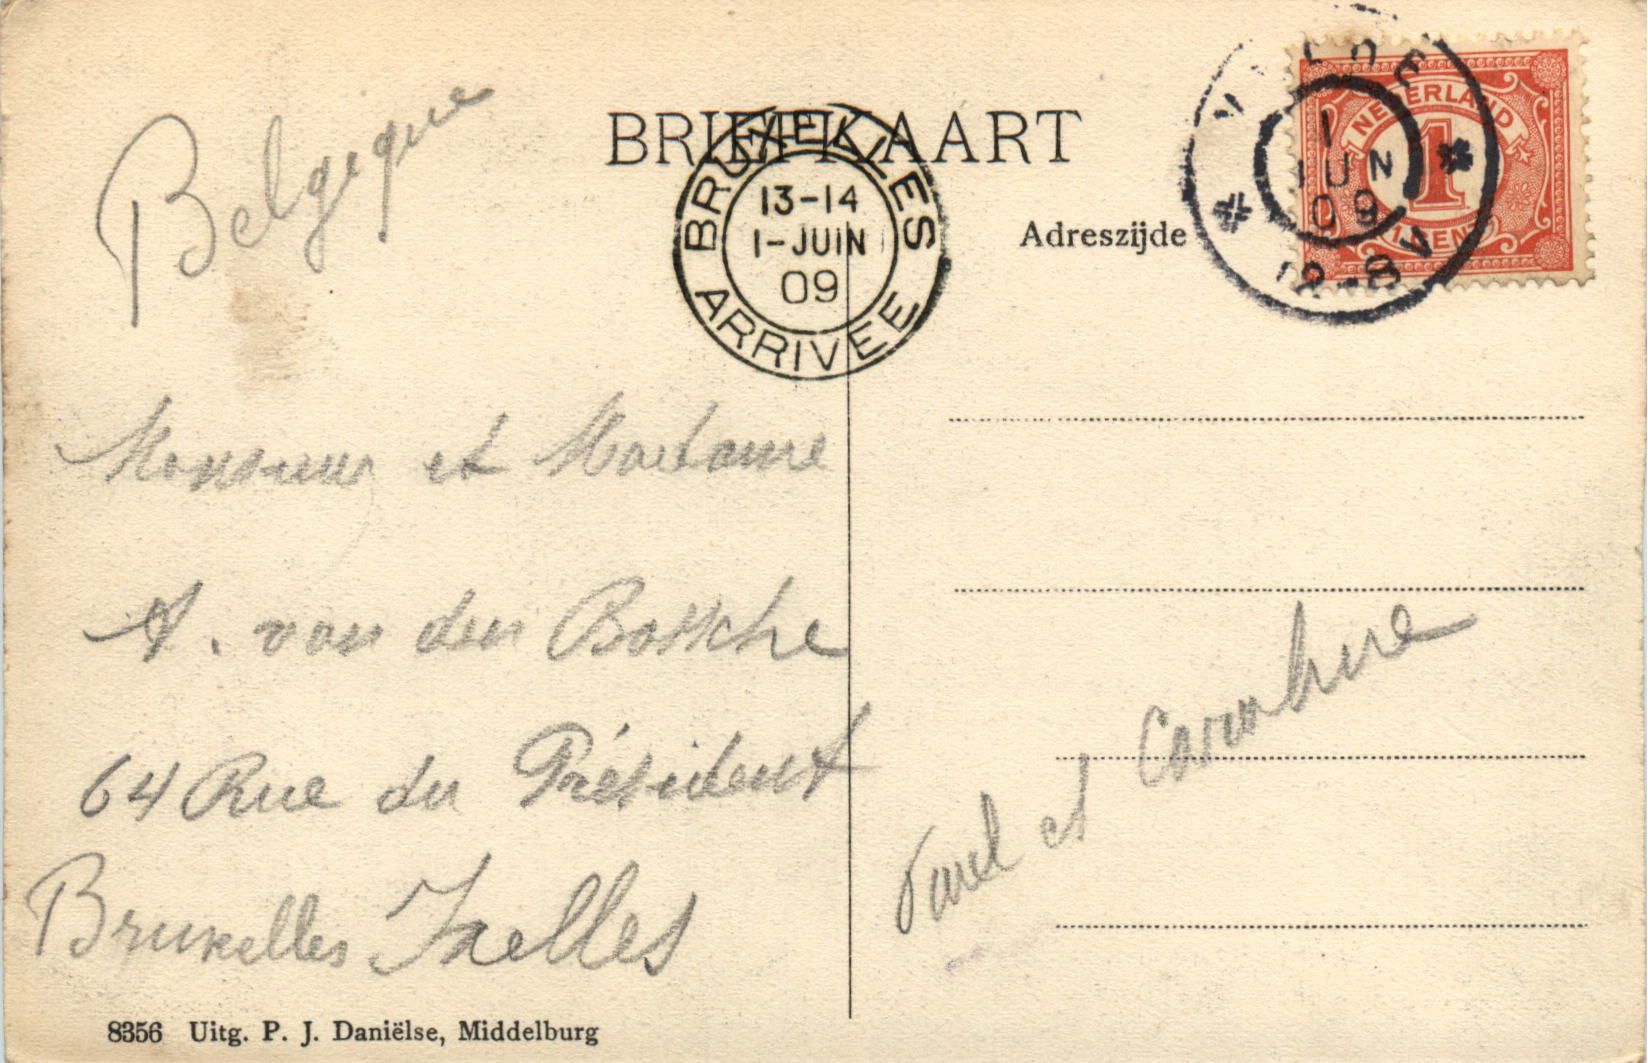 BRIEFKAART
Adreszijde
BRUXELLES
13-14
1-JUIN
09
ARRIVEE
1
JUN
09
12-8 V
NEDERLAND
1
1 CENT
Belgeque
Monsieur et Madame
A. van den Bossche
64 Rue du Président
Bruxelles Ixelles
et
8356 Uitg. P. J. Daniëlse, Middelburg